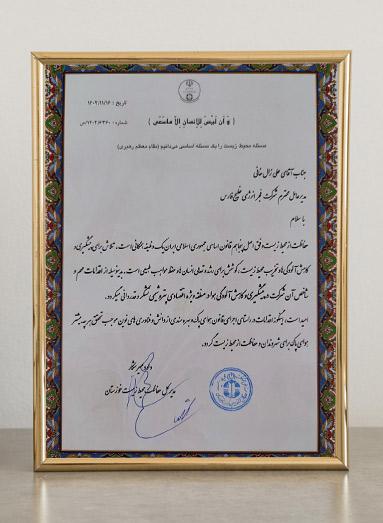 تاریخ : ۱۴۰۲/۱۱/۱۶
شماره : ۱۴۰۲/۶۳۶۰/ص
( وَ أن لَیسَ لِلإنسانِ إلاّ ماسَعی )
مسئله محیط زیست را یک مسئله اساسی می‌دانیم (مقام معظم رهبری)
جناب آقای علی زال خانی
مدیرعامل محترم شرکت فجر انرژی خلیج فارس
با سلام
حفاظت از محیط زیست وفق اصل پنجاهم قانون اساسی جمهوری اسلامی ایران یک وظیفه همگانی است. تلاش برای پیشگیری و
کاهش آلودگی های تخریب محیط زیست، کوشش برای رشد و تعالی انسان ها و حفظ مواهب طبیعی است. بدینوسیله از اقدامات مهم و
شاخص آن شرکت در پیشگیری و کاهش آلودگی هوا در منطقه ویژه اقتصادی پتروشیمی تشکر و قدردانی میگردد.
امید است، اینگونه اقدامات در راستای اجرای قانون هوای پاک و بهره مندی از دانش و فناوری های نوین موجب تحقق هر چه بیشتر
هوای پاک برای شهروندان و حفاظت از محیط زیست گردد.
مدیرکل حفاظت محیط زیست خوزستان